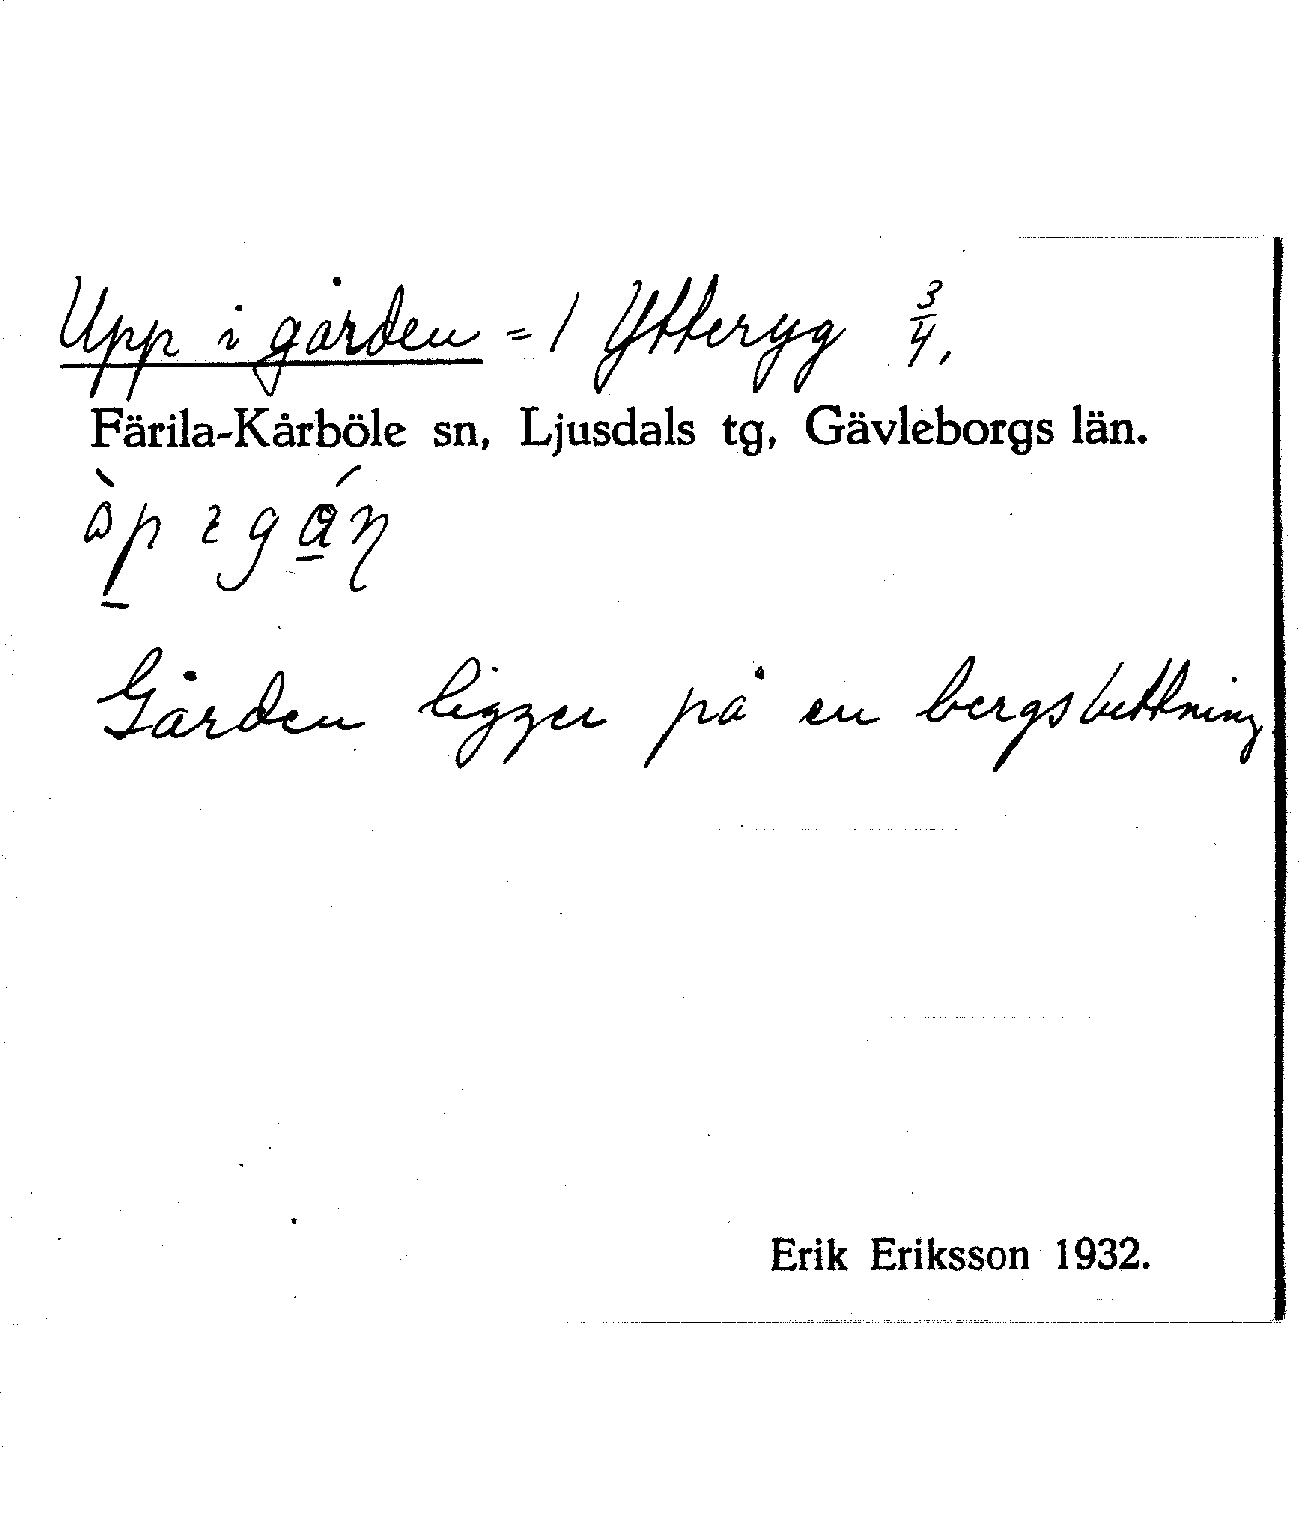 Upp i gården = 1 Ytteryg 3/4,
Färila-Kårböle sn, Ljusdals tg, Gävleborgs län.
Gården ligger på en bergsbettning
Erik Eriksson 1932.